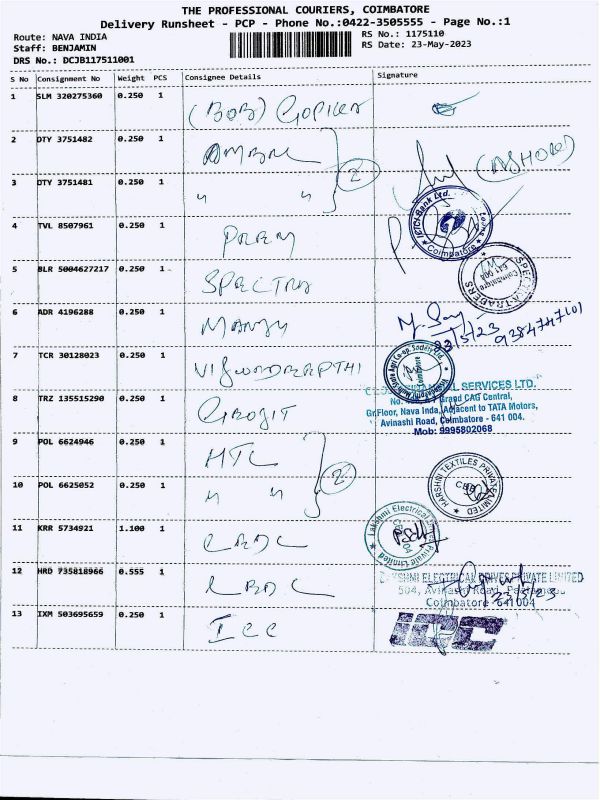 THE PROFESSIONAL COURIERS, COIMBATORE
Delivery Runsheet - PCP - Phone No.:0422-3505555 - Page No.:1
Route: NAVA INDIA
Staff: BENJAMIN
DRS No.: DCJB117511001
RS No.: 1175110
RS Date: 23-May-2023
S No Consignment No Weight PCS Consignee Details Signature
1 SLM 320275360 0.250 1 (BOB) GOPIKA
2 DTY 3751482 0.250 1
(ASHOK)
3 DTY 3751481 0.250 1 " "
2
ICICI Bank Ltd. Coimbatore
4 TVL 8507961 0.250 1 PREM
5 BLR 5004627217 0.250 1 SPECTRA
SPECTRA TRADERS Coimbatore 641 004
6 ADR 4196288 0.250 1 MANJU
23/5/23
7 TCR 30128023 0.250 1
Coimbatore
8 TRZ 135515290 0.250 1 GEOJIT
SERVICES LTD.
Grand CAG Central,
Gr.Floor, Nava Inda, Adjacent to TATA Motors,
Avinashi Road, Coimbatore - 641 004.
Mob: 9995802068
9 POL 6624946 0.250 1 HTL
10 POL 6625052 0.250 1 " "
2
HARSHNI TEXTILES PRIVATE LIMITED CBE
11 KRR 5734921 1.100 1
Lakshmi Electrical Private Limited
12 HRD 735818966 0.555 1
LAKSHMI ELECTRICAL DRIVES PRIVATE LIMITED
504, Avinashi Road, Peelamedu
Coimbatore - 641004
13 IXM 503695659 0.250 1 ICC